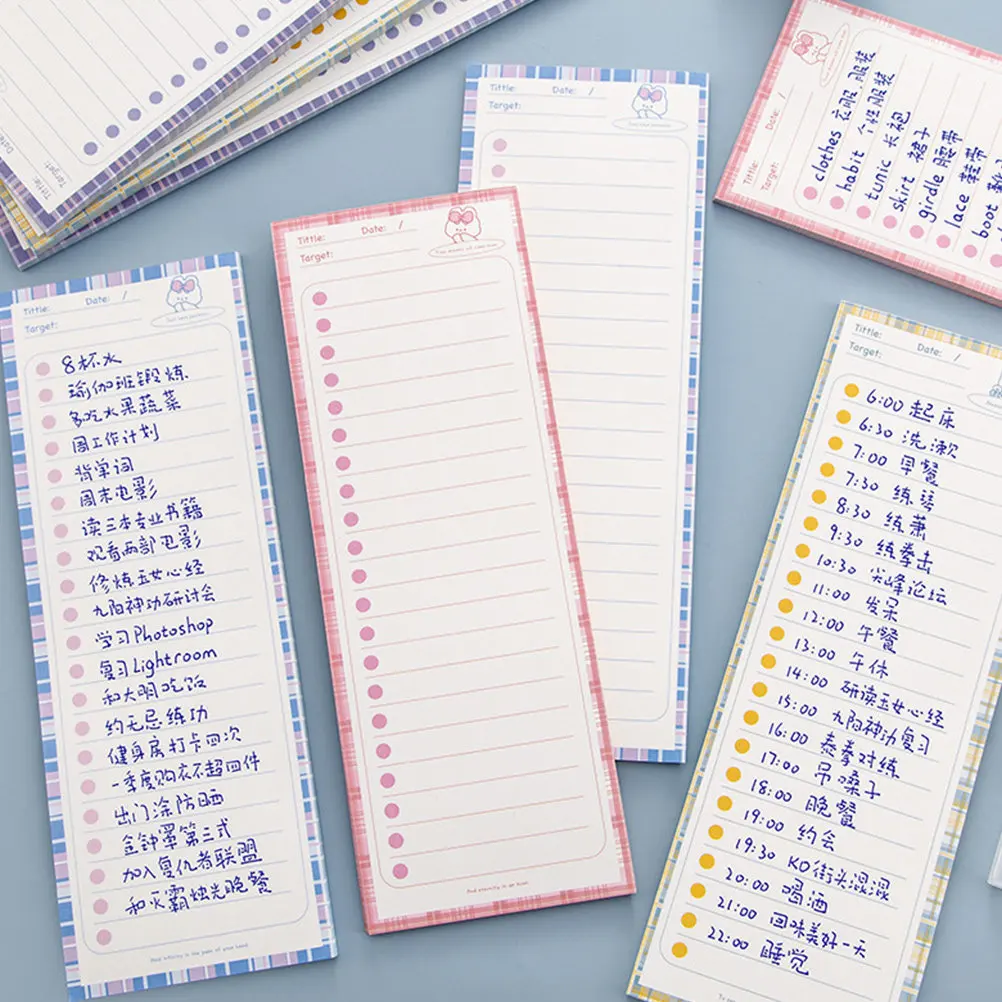 Tittle: Date: /
Target:
8杯水
瑜伽班锻炼
多吃水果蔬菜
周工作计划
背单词
周末电影
读三本专业书籍
观看两部电影
修炼玉女心经
九阳神功研讨会
学习Photoshop
复习Lightroom
和大明吃饭
约无忌练功
健身房打卡四次
一季度购衣不超四件
出门涂防晒
金钟罩第三式
加入复仇者联盟
和灭霸烛光晚餐
Tittle: Date: /
Target:
Tittle: Date: /
Target:
Tittle: Date: /
Target:
clothes 衣服,服装
habit 个性服装
tunic 长袍
skirt 裙子
girdle 腰带
lace 鞋带
boot
Tittle: Date: /
Target:
6:00 起床
6:30 洗漱
7:00 早餐
7:30 练琴
8:30 练萧
9:30 练拳击
10:30 尖峰论坛
11:00 发呆
12:00 午餐
13:00 午休
14:00 研读玉女心经
15:00 九阳神功复习
16:00 泰拳对练
17:00 吊嗓子
18:00 晚餐
19:00 约会
19:30 KO街头混混
20:00 喝酒
21:00 回味美好一天
22:00 睡觉
Tittle: